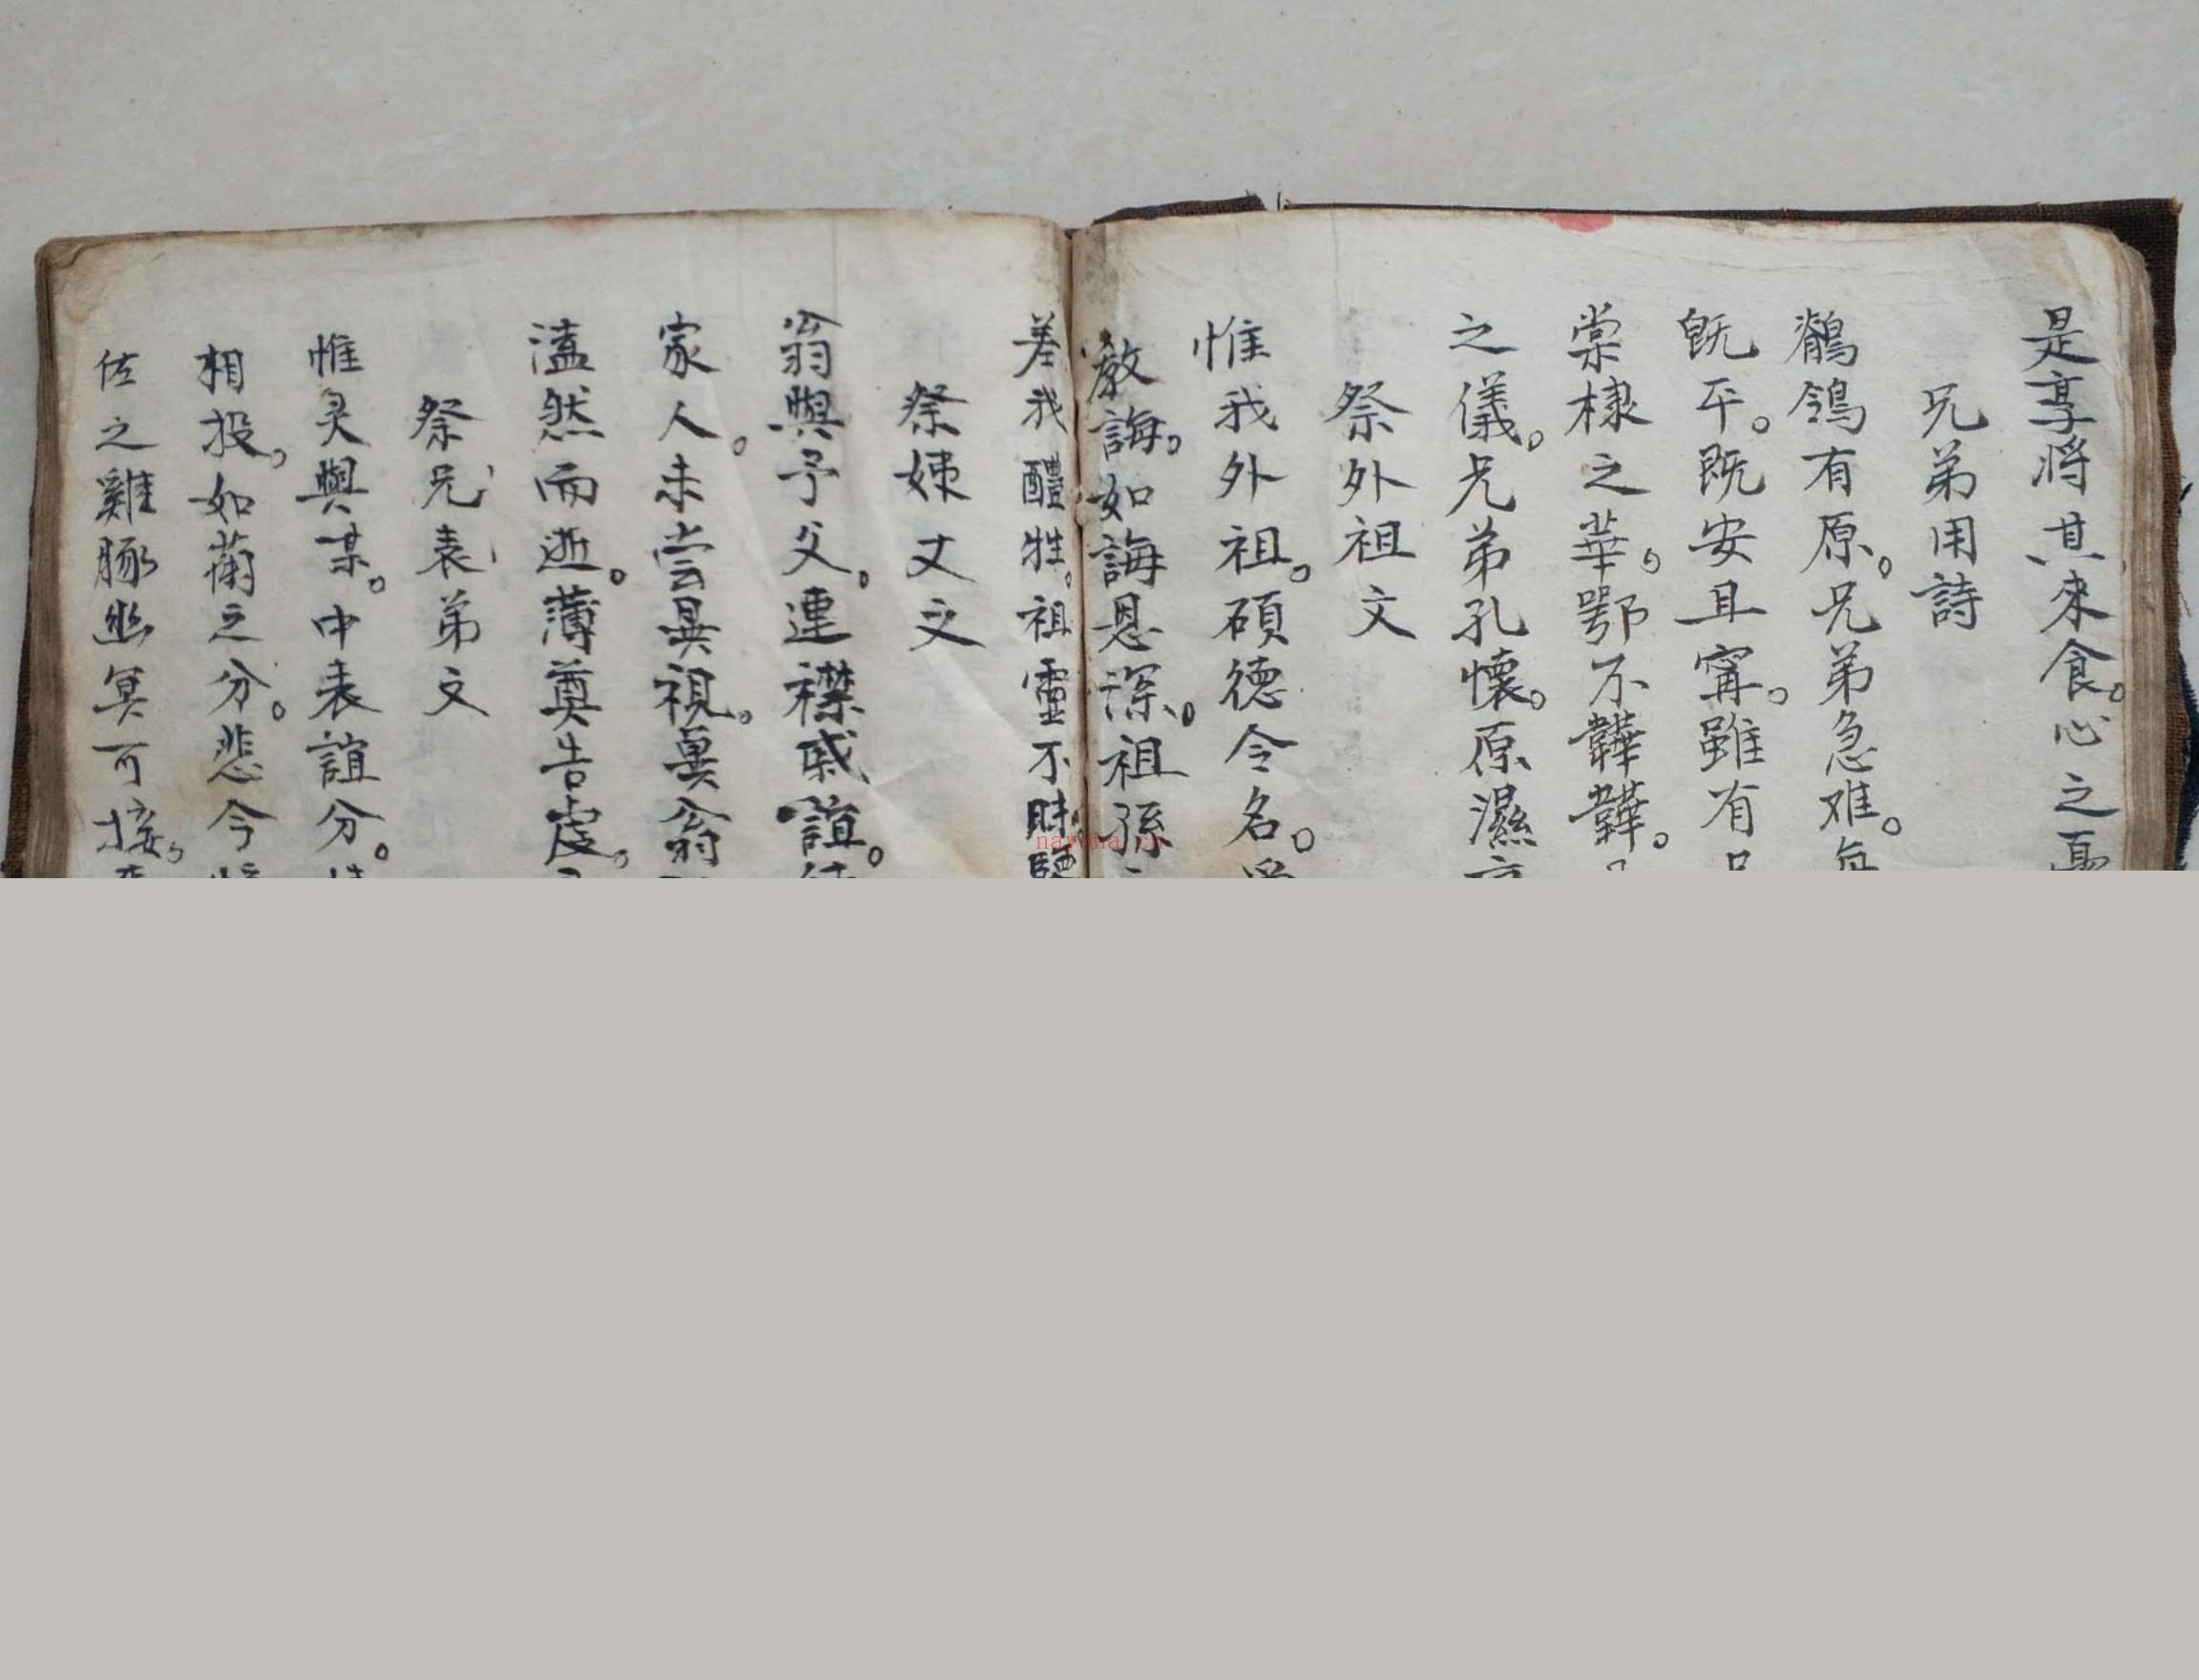 是享將其來食。心之憂
兄弟用詩
鶺鴒有原。兄弟急难。每
旣平。既安且寗。雖有
棠棣之華。鄂不韡韡。
之儀。兄弟孔懷。原濕
祭外祖文
惟我外祖。碩德令名。
教誨。如誨恩深。祖孫
羞我醴牲。祖靈不昧。
祭姨丈文
翁與予父。連襟戚誼。
家人。未尝異視。奠翁
溘然而逝。薄奠告虔。
祭兄表弟文
惟灵與某。中表誼分。
相投。如蘭之分。悲今
佐之雞豚幽冥可接。